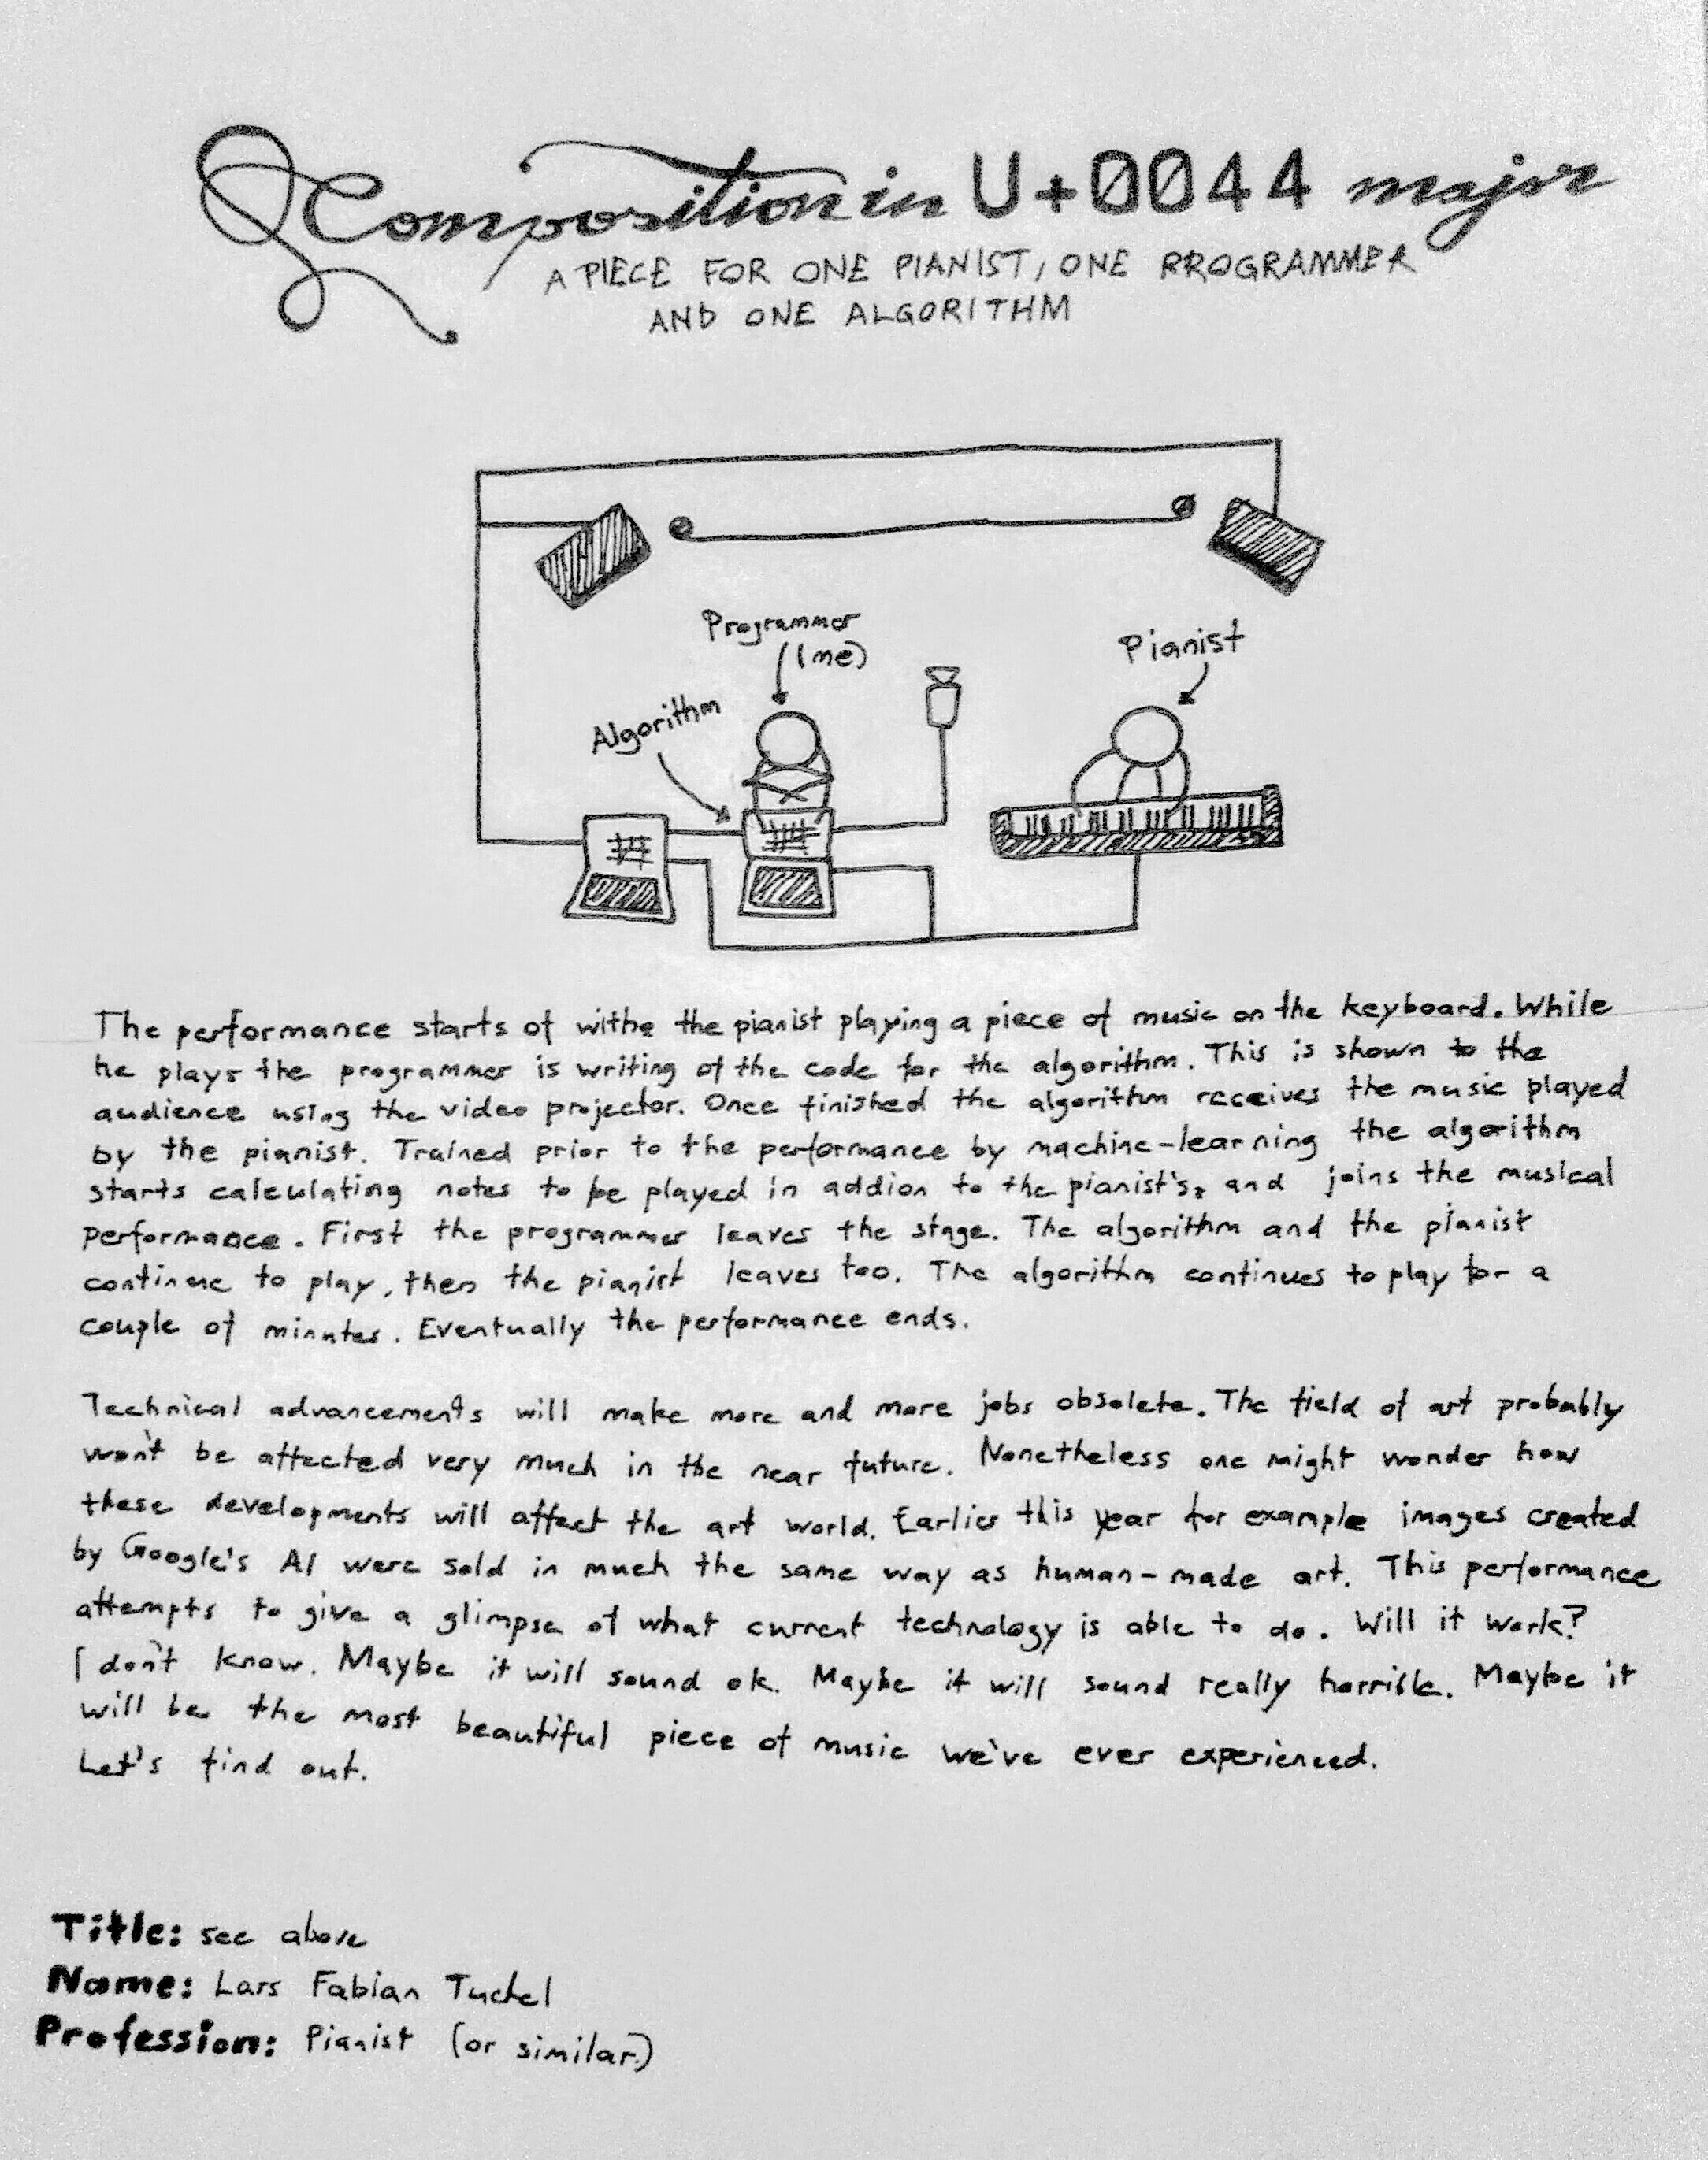 Composition in U+0044 major
A PIECE FOR ONE PIANIST, ONE PROGRAMMER
AND ONE ALGORITHM
Programmer
(me)
Pianist
Algorithm
The performance starts of withe the pianist playing a piece of music on the keyboard. While
he plays the programmer is writing of the code for the algorithm. This is shown to the
audience using the video projector. Once finished the algorithm receives the music played
by the pianist. Trained prior to the performance by machine-learning the algorithm
starts calculating notes to be played in addion to the pianist's, and joins the musical
performance. First the programmer leaves the stage. The algorithm and the pianist
continue to play, then the pianist leaves too. The algorithm continues to play for a
couple of minutes. Eventually the performance ends.
Technical advancements will make more and more jobs obsolete. The field of art probably
won't be affected very much in the near future. Nonetheless one might wonder how
these developments will affect the art world. Earlier this year for example images created
by Google's AI were sold in much the same way as human-made art. This performance
attempts to give a glimpse of what current technology is able to do. Will it work?
I don't know. Maybe it will sound ok. Maybe it will sound really horrible. Maybe it
will be the most beautiful piece of music we've ever experienced.
Let's find out.
Title: see above
Name: Lars Fabian Tuchel
Profession: Pianist (or similar)